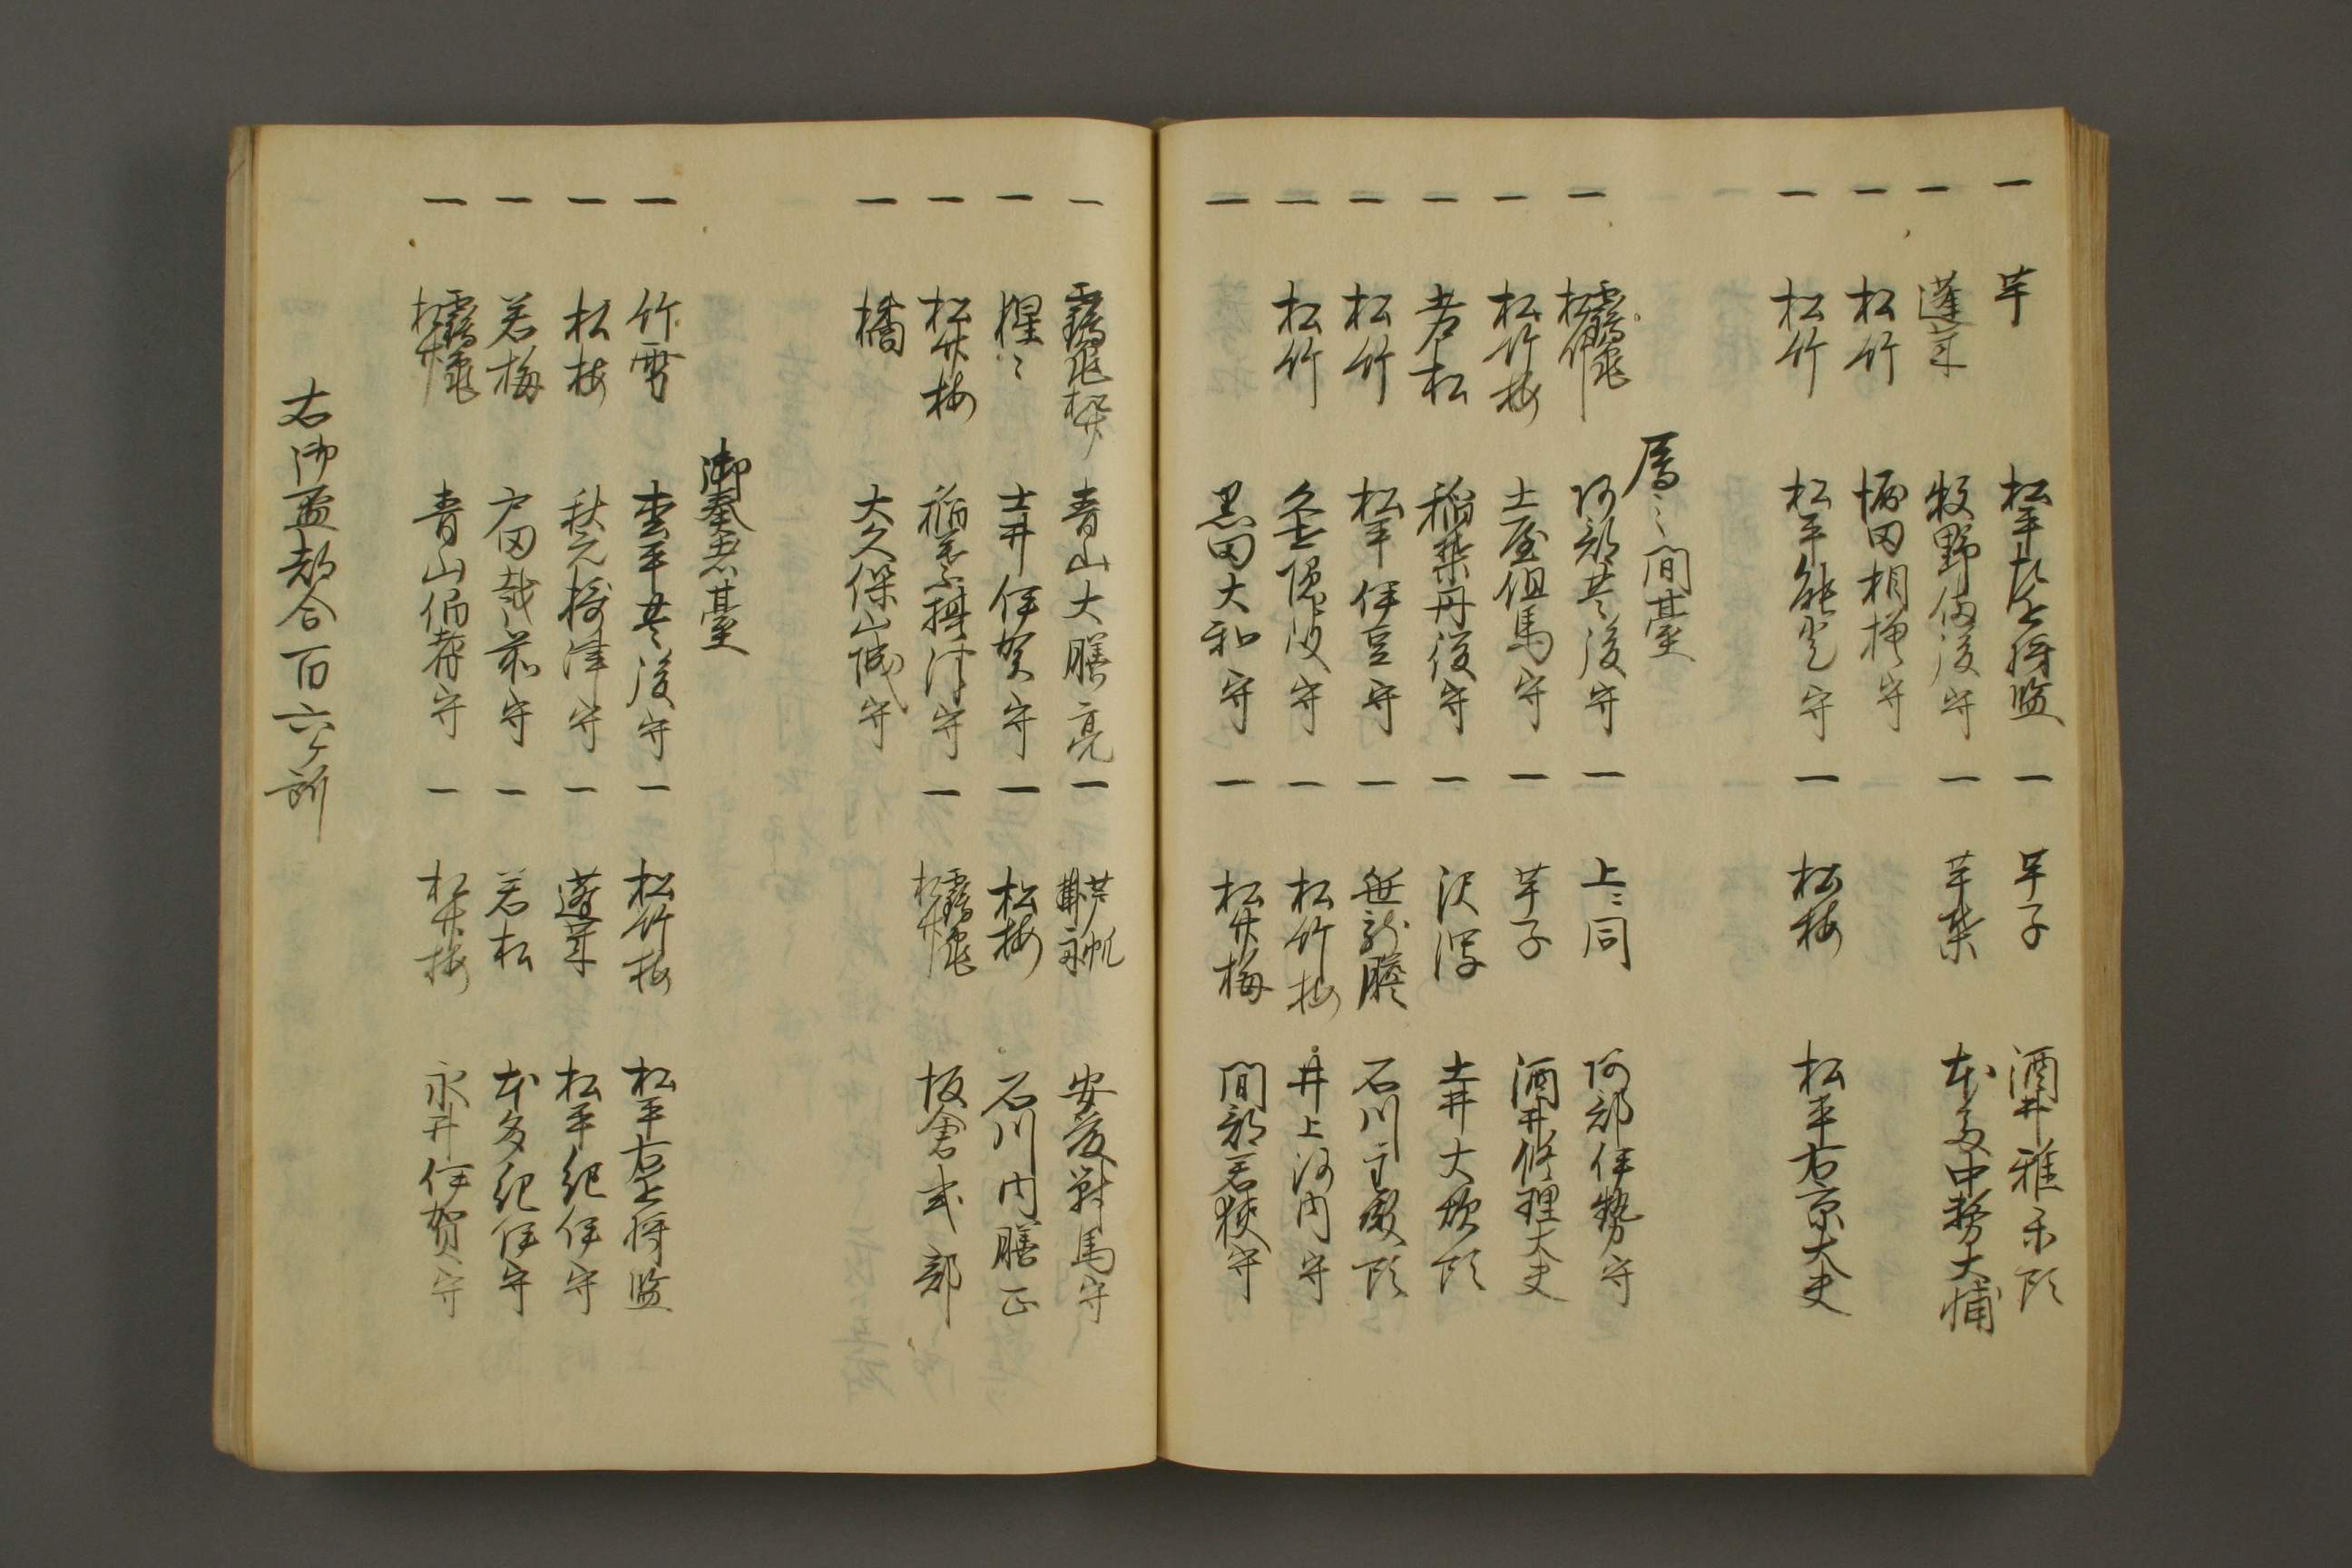 一 芋 松平左近将監 一 芋子 酒井雅楽頭
一 蓬莱 牧野備後守 一 芋葉 本多中務大輔
一 松竹 堀田相模守
一 松竹 松平能登守 一 松梅 松平右京大夫
雁之間臺
一 鶴亀松竹 阿部豊後守 一 上ニ同 阿部伊勢守
一 松竹梅 土屋但馬守 一 芋子 酒井修理大夫
一 若松 稲葉丹後守 一 沢瀉 土井大炊頭
一 松竹 松平伊豆守 一 石川主殿頭
一 松竹 守 一 松竹梅 井上河内守
一 黒田大和守 一 松竹梅 間部若狭守
一 鶴亀 青山大膳亮 一 安藤對馬守
一 猩々 土井伊賀守 一 松梅 石川内膳正
一 松竹梅 稲葉摂津守 一 鶴亀松竹 板倉式部
一 橘 大久保山城守
御奏者臺
一 竹雪 松平豊後守 一 松竹梅 松平右近将監
一 松梅 秋元摂津守 一 蓬莱 松平紀伊守
一 若梅 戸田越前守 一 若松 本多紀伊守
一 鶴亀松竹 青山伯耆守 一 松竹梅 永井伊賀守
右御盃都合百六ヶ所